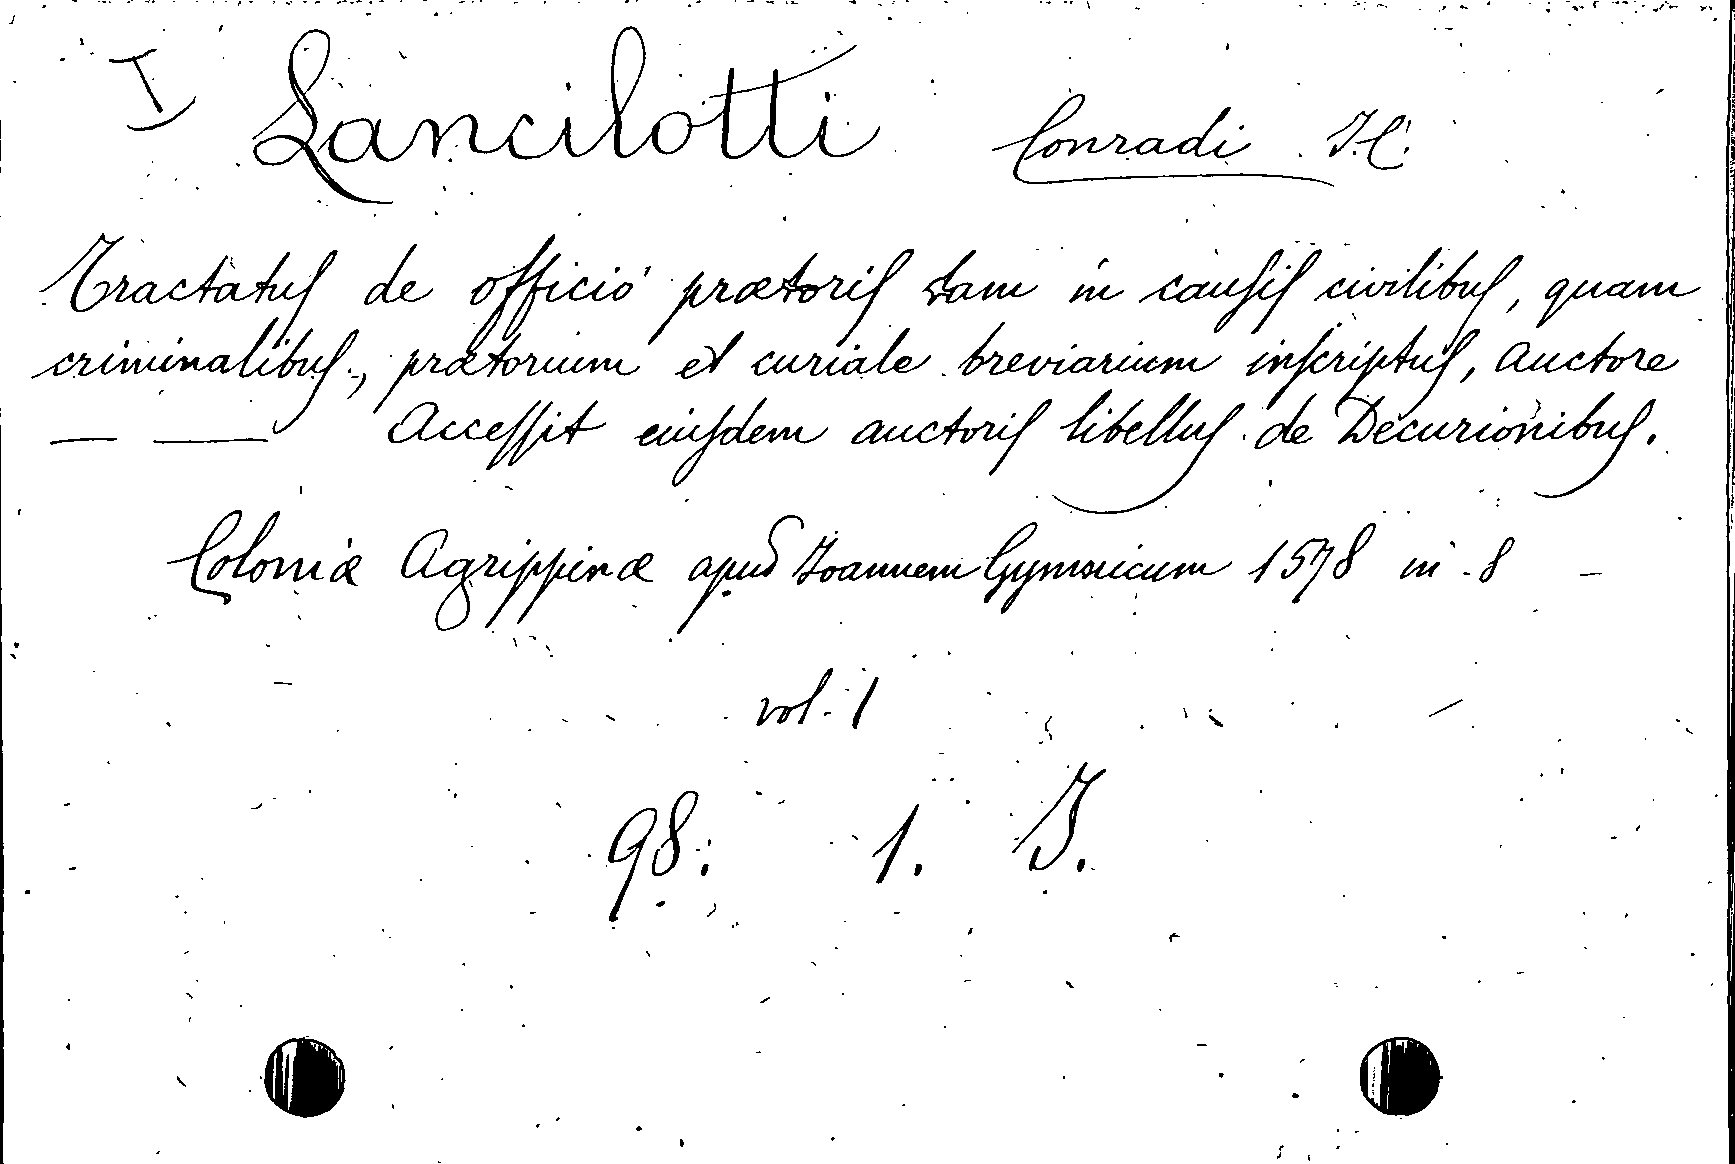 I Lancilotti Conradi I.C.
Tractatuſ de officio prætoriſ tam in cauſiſ civilibuſ, quam
criminalibuſ, prætorium et curiale breviarium inſcriptuſ, auctore
— — Acceſſit eiuſdem auctoriſ libelluſ de Decurionibuſ.
Coloniæ Agrippinæ apud Ioannem Gymnicum 1578 in 8 -
vol. 1
98. 1. I.